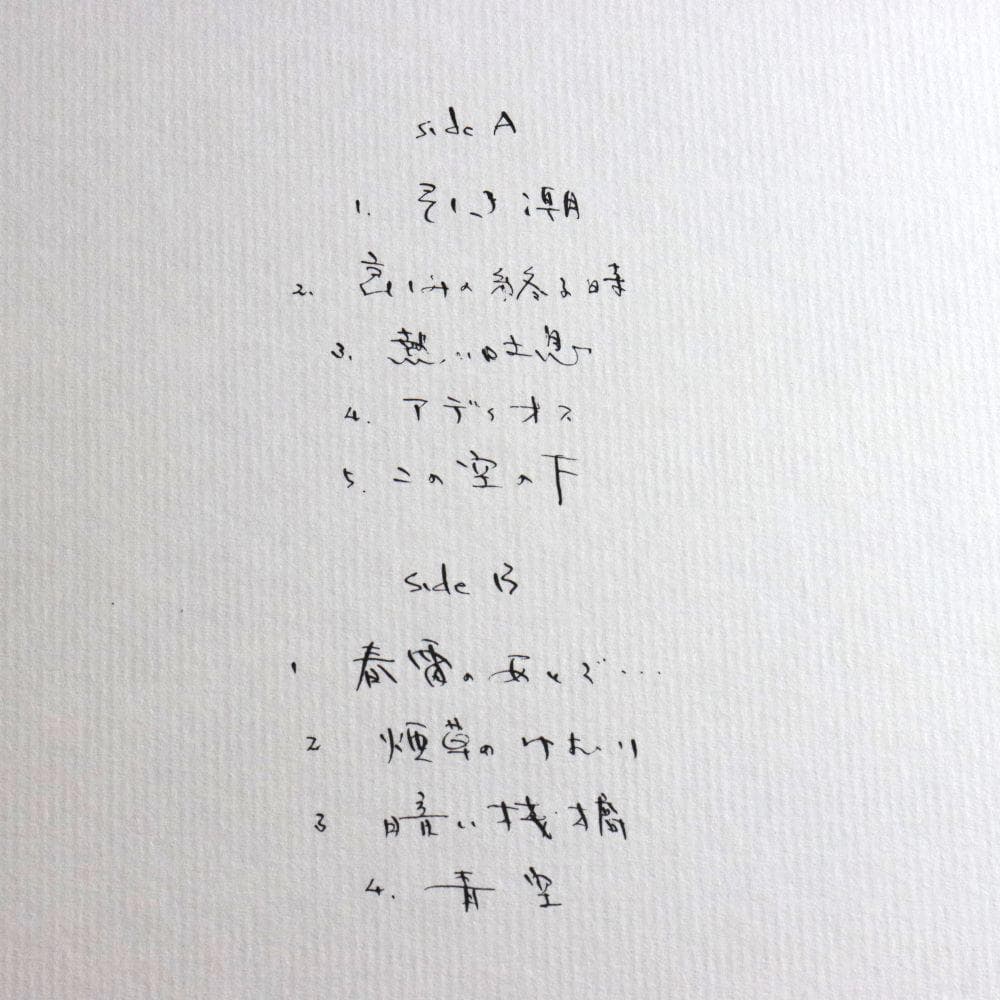 side A
1. 引き潮
2. 哀しみの終る時
3. 熱い吐息
4. アディオス
5. この空の下
side B
1 春雷のあとで…
2 煙草のけむり
3 暗い桟橋
4. 青空